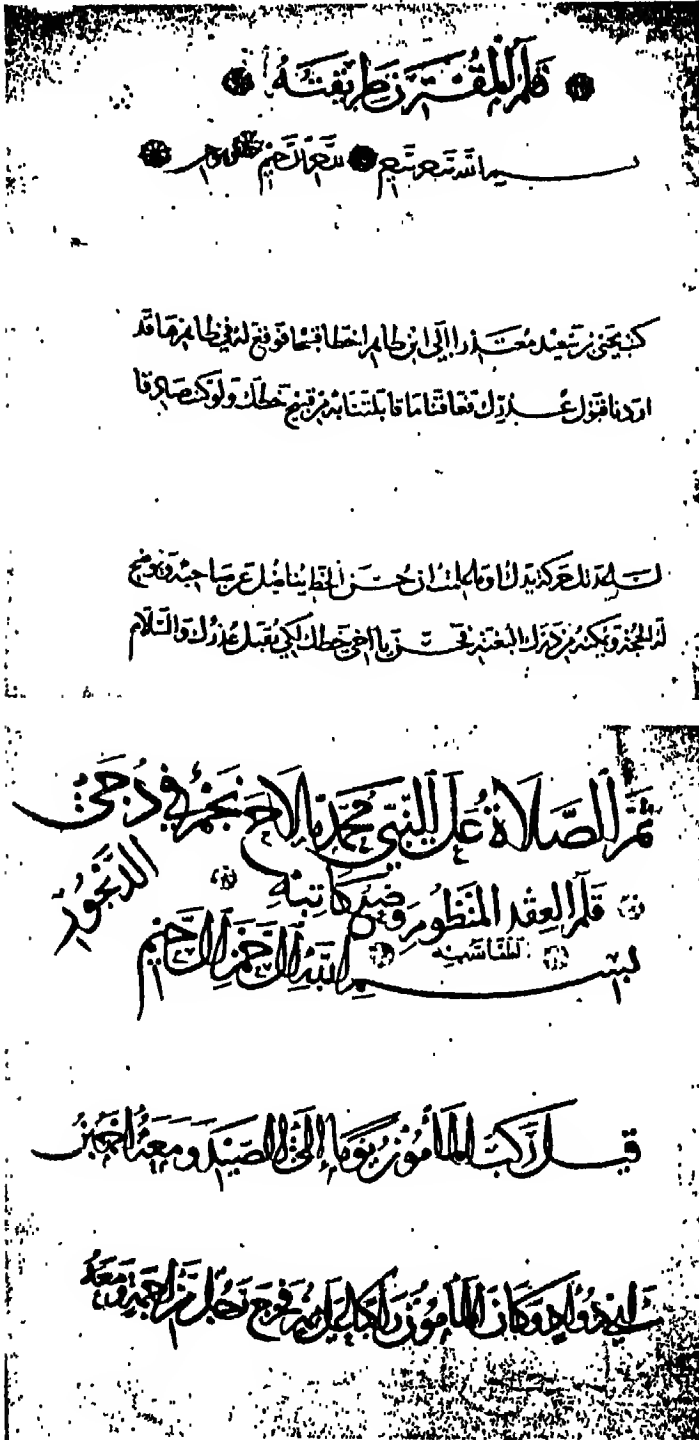 قلم المقترن طريقته
بسم الله
كتب يحيى بن سعيد معتذرا إلى ابن طاهر خطا قبيحا فوقع له في ظاهرها قد
اردنا قبول عذرك فعاقنا ما قابلتنا به من قبيح خطك ولو كنت صادقا
حركة يدك أو ما علمت ان حسن الخط يناضل عن صاحبه ويوضح
له الحجة ويمكنه من درك البغية فحسن يا اخي خطك لكي يقبل عذرك والسلام
ثم الصلاة على النبي محمد ما لاح نجم في دجى
الديجور
قلم العقد المنظوم وضع كاتبه
بسم الله الرحمن الرحيم
قيل ركب المأمون يوما إلى الصيد ومعه احمد بن
ابي دواد وكان المأمون رجل من ومعه